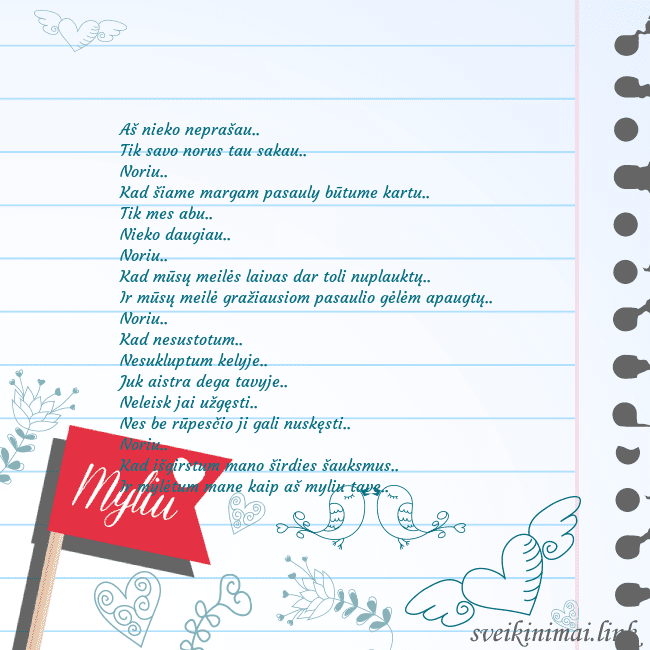 Aš nieko neprašau..
Tik savo norus tau sakau..
Noriu..
Kad šiame margam pasauly būtume kartu..
Tik mes abu..
Nieko daugiau..
Noriu..
Kad mūsų meilės laivas dar toli nuplauktų..
Ir mūsų meilė gražiausiom pasaulio gėlėm apaugtų..
Noriu..
Kad nesustotum..
Nesukluptum kelyje..
Juk aistra dega tavyje..
Neleisk jai užgęsti..
Nes be rūpesčio ji gali nuskęsti..
Noriu..
Kad išgirstum mano širdies šauksmus..
Ir mylėtum mane kaip aš myliu tave..
Myliu
sveikinimai.link